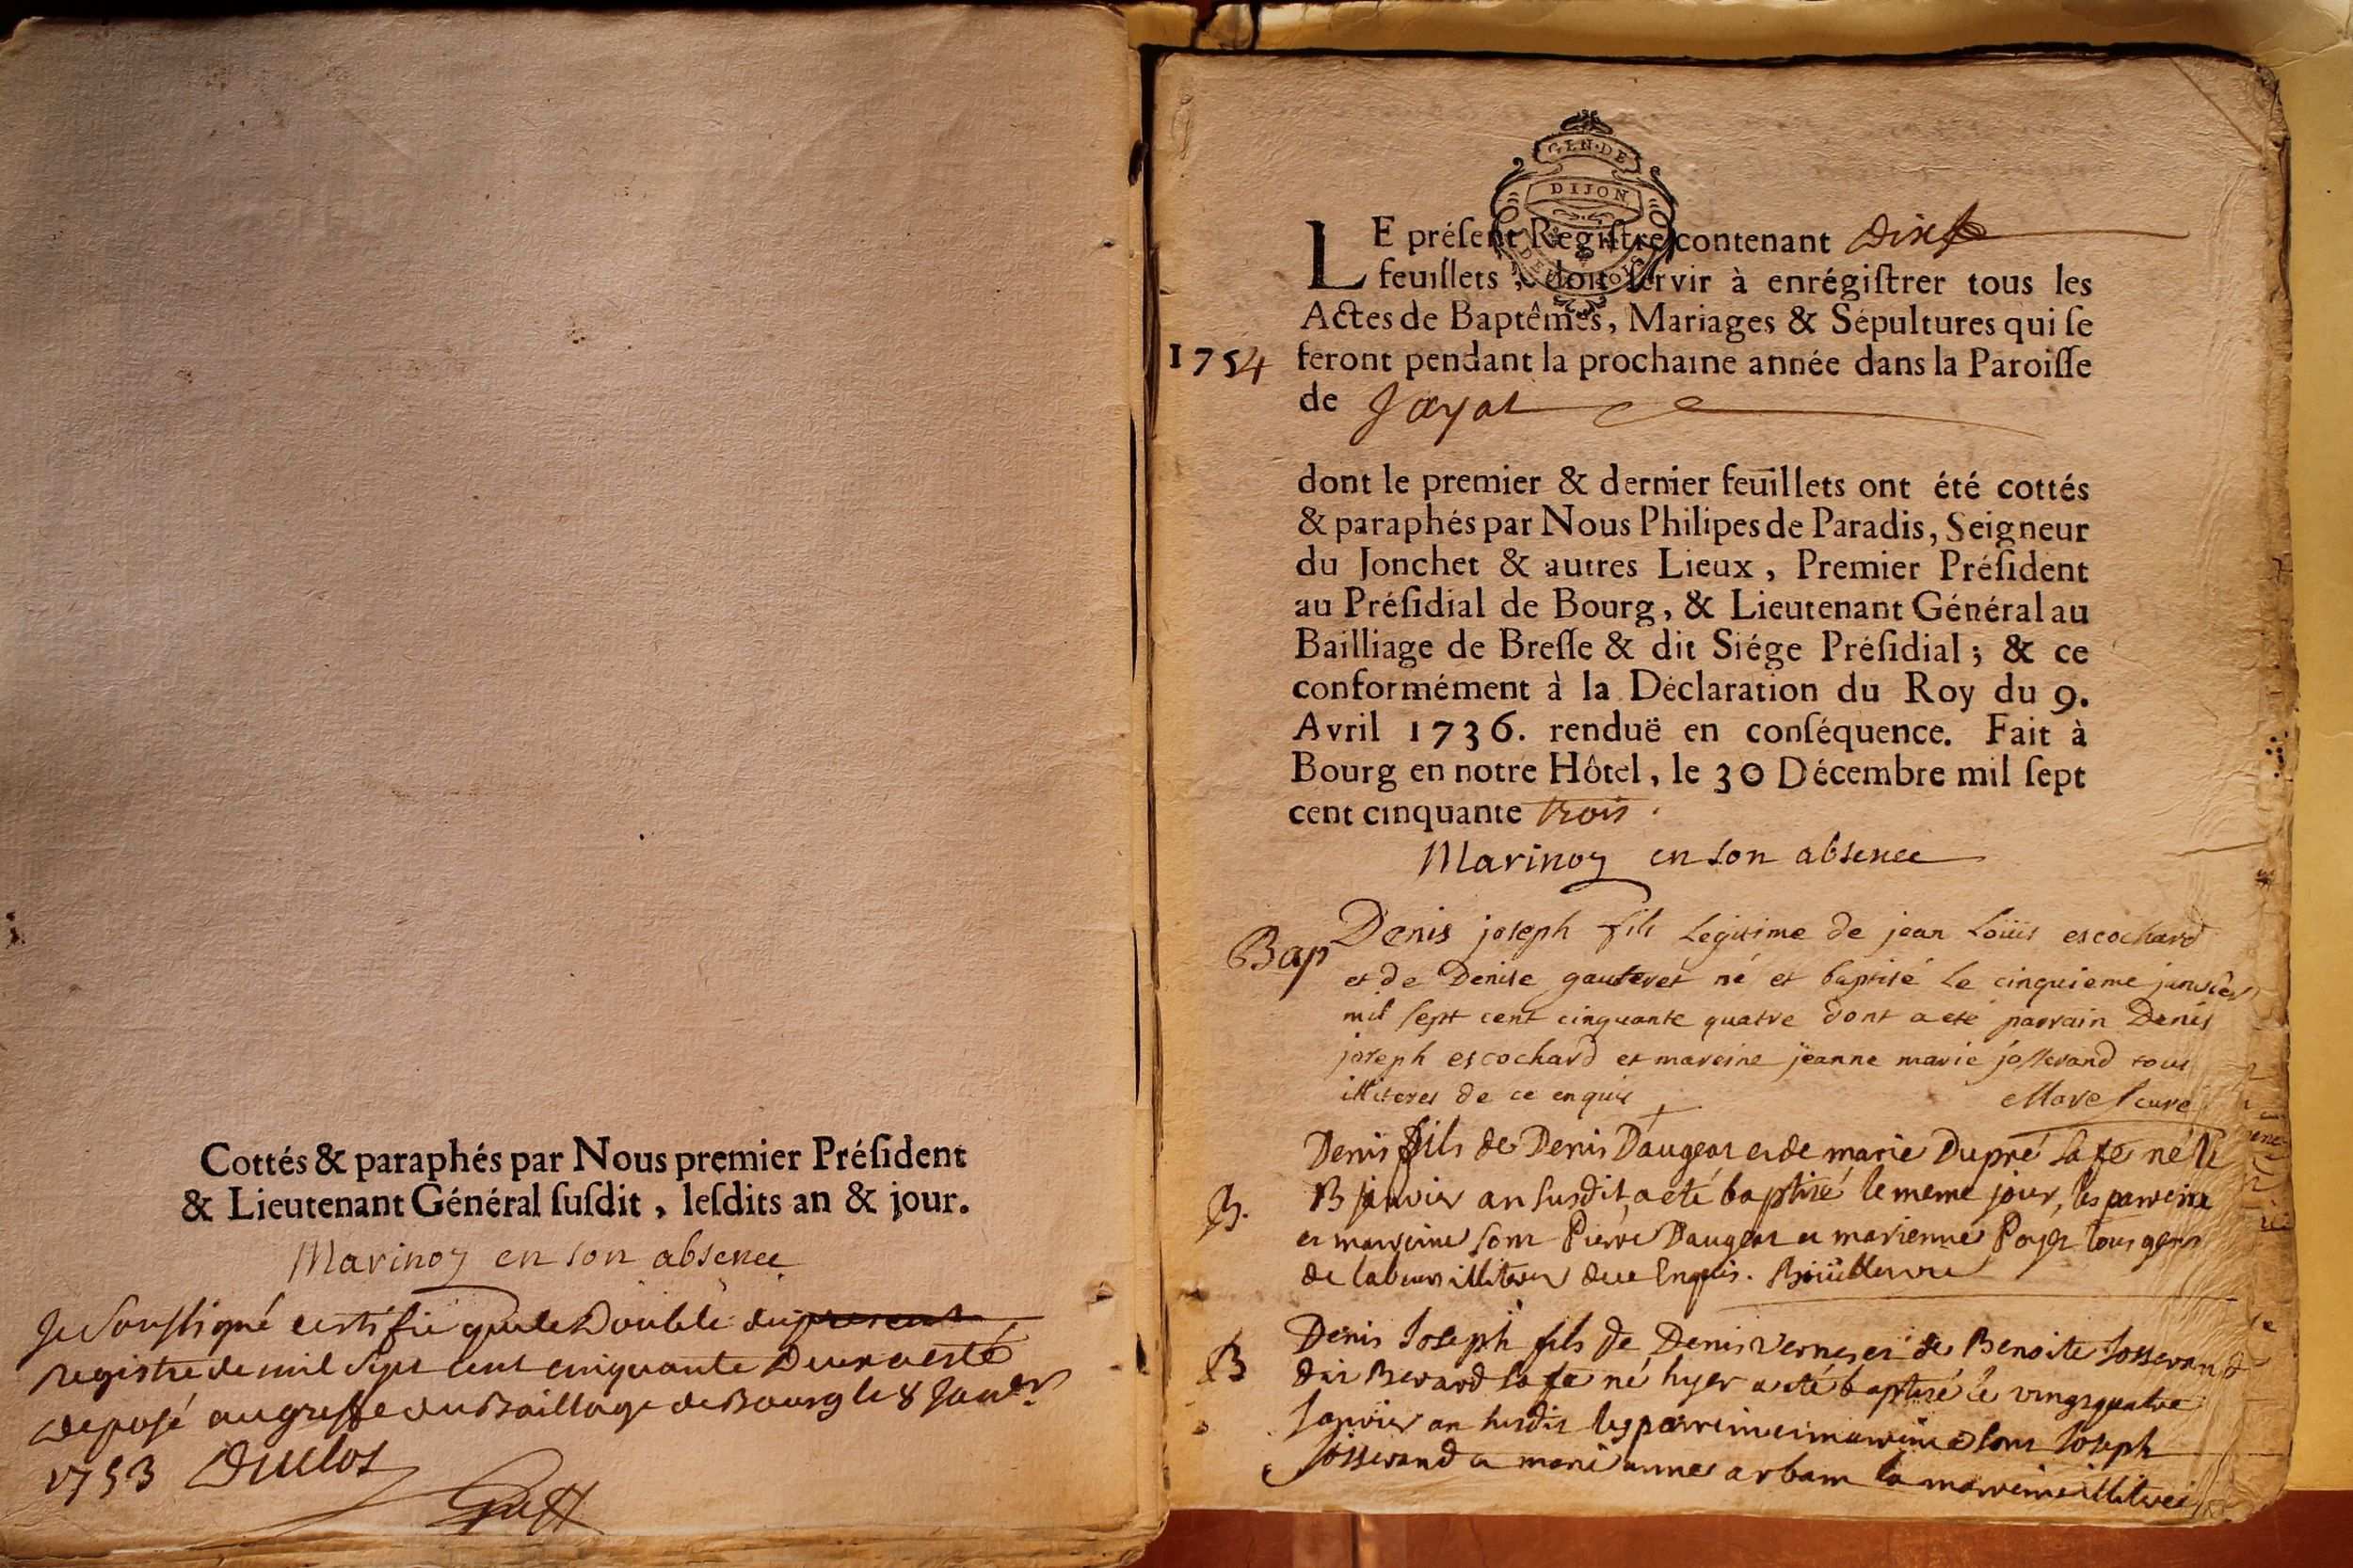 Cottés & paraphés par Nous premier Préſident
& Lieutenant Général ſuſdit, leſdits an & jour.
Marinoz en son absence
Je Soussigné certifie que le Double du present
registre de mil Sept cent cinquante Deux a esté
deposé au greffe du Baillage de Bourg le 8 Janer
1753 Duclos
GEN. DE
DIJON
LE préſent Regiſtre contenant dix
feuillets, doit ſervir à enrégiſtrer tous les
Actes de Baptêmes, Mariages & Sépultures qui ſe
1754 feront pendant la prochaine année dans la Paroiſſe
de Jayat
dont le premier & dernier feuillets ont été cottés
& paraphés par Nous Philipes de Paradis, Seigneur
du Jonchet & autres Lieux, Premier Préſident
au Préſidial de Bourg, & Lieutenant Général au
Bailliage de Breſſe & dit Siége Préſidial; & ce
conformément à la Déclaration du Roy du 9.
Avril 1736. renduë en conſéquence. Fait à
Bourg en notre Hôtel, le 30 Décembre mil ſept
cent cinquante trois.
Marinoz en son absence
Bap Denis joseph fils Legitime de jean Loüis escochard
et de Denise gauteret né et baptisé Le cinquieme janvier
mil sept cent cinquante quatre dont a eté parrain Denis
joseph escochard et mareine jeanne marie josserand tous
illiteres de ce enquis Morel curé
Denis fils de Denis Daugeat et de marie Dupré sa fe né le
B. 13 janvier an susdit, a eté baptisé le meme jour, les parreine
et marreine sont Pierre Daugeat et marienne Poget tous gens
de labeur illiteres de ce Enquis.
B Denis Joseph fils de Denis Vernet et de Benoite Josserand
dit Berard sa fe né hyer a eté baptisé le vingt quatre
Janvier an susdit les parrein et marreine sont Joseph
Josserand et marie anne arbam la marreine illiteree